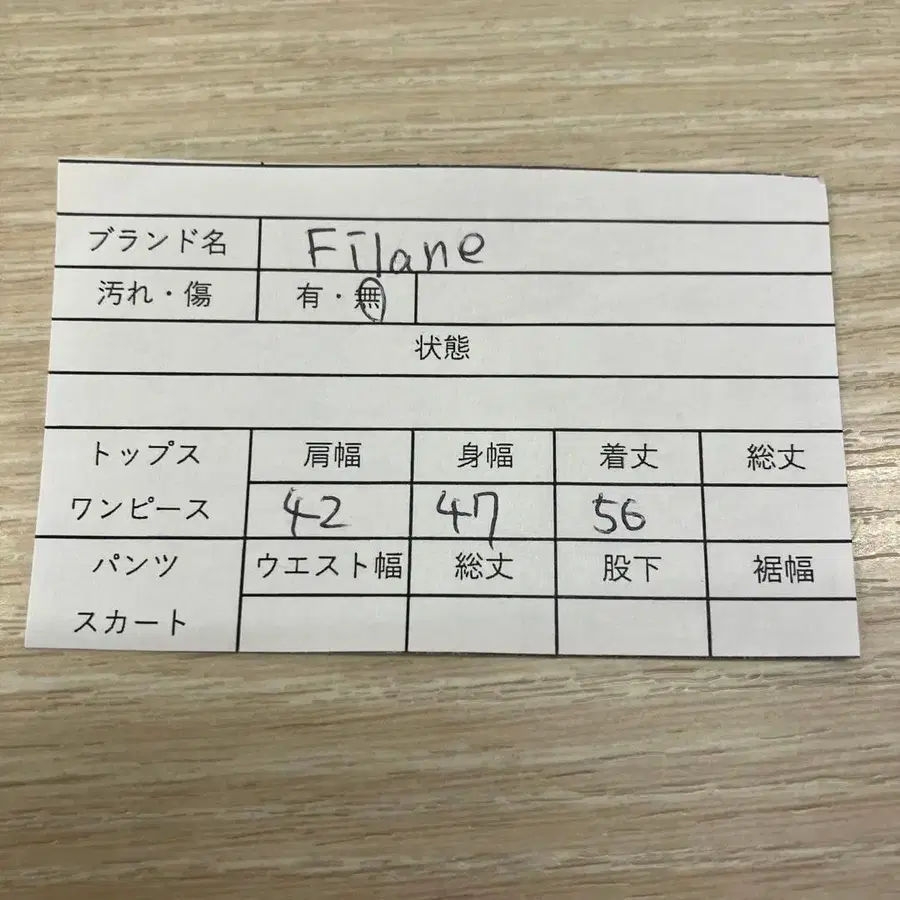 ブランド名 Filane
汚れ・傷 有・無
状態
トップス 肩幅 身幅 着丈 総丈
ワンピース 42 47 56
パンツ ウエスト幅 総丈 股下 裾幅
スカート